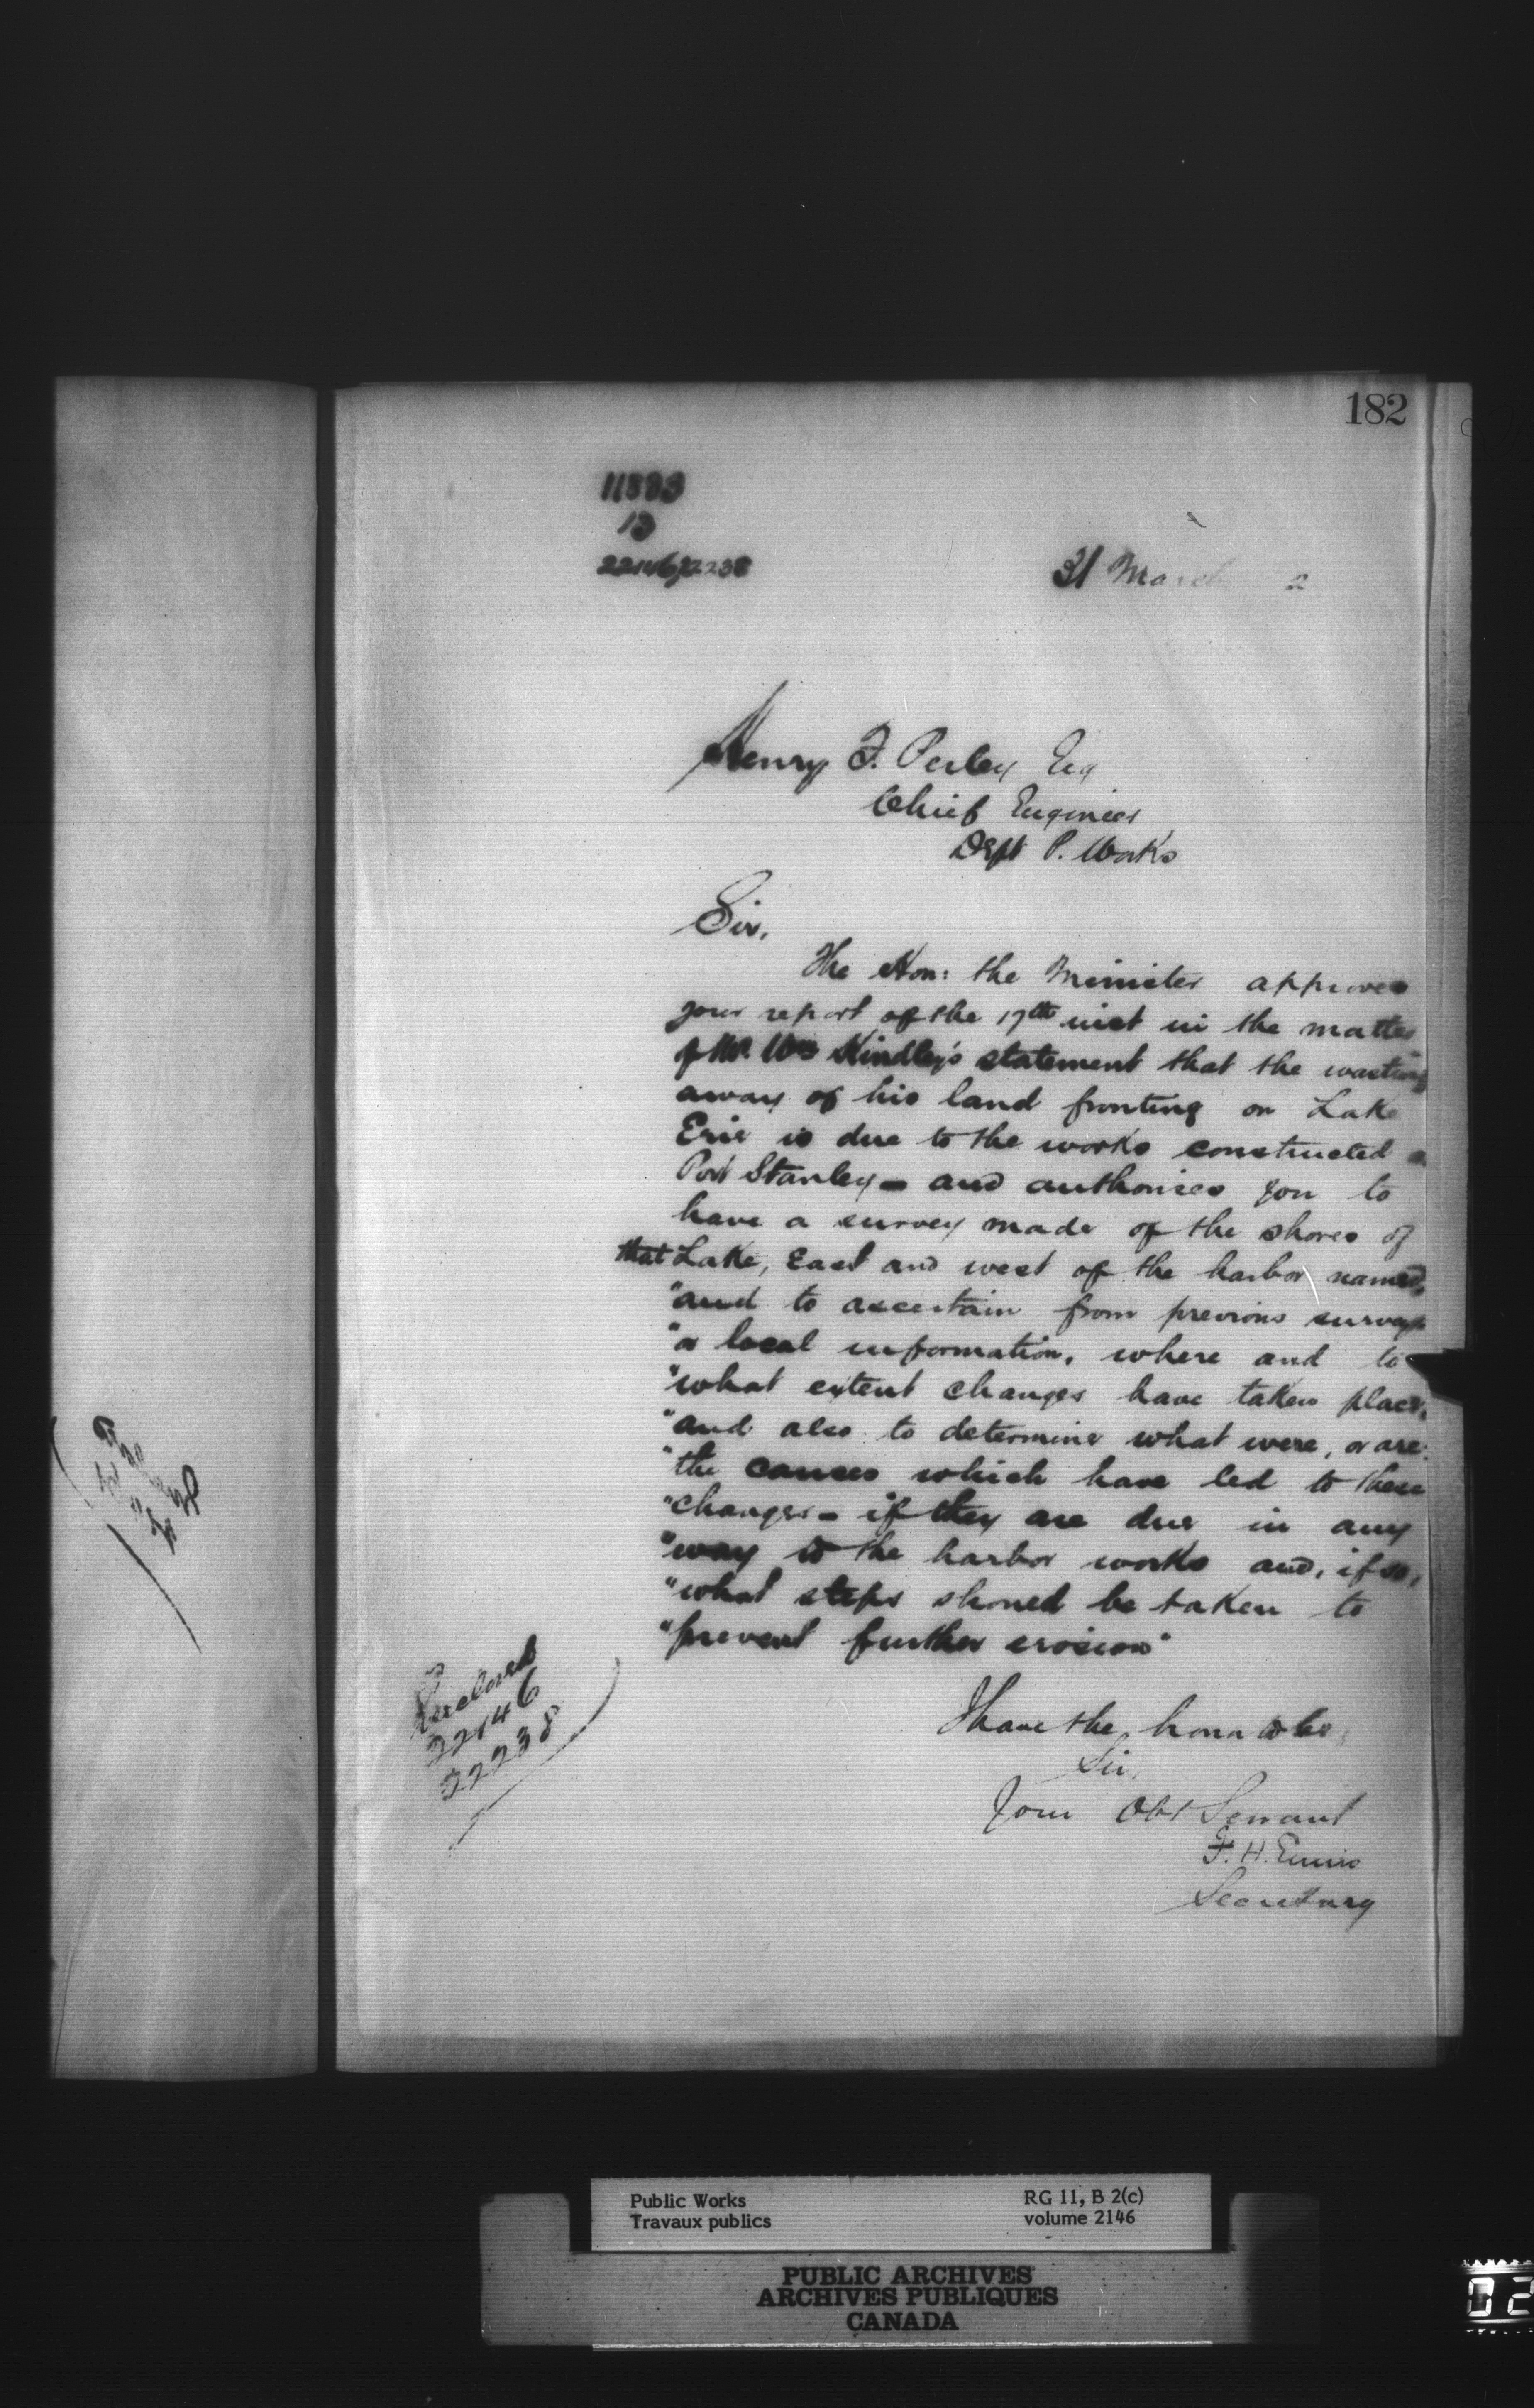 182
11883
13
22146/22238
31 March 2
Henry F. Perley Esq
Chief Engineer
Dept P. Works
Sir,
The Hon: the Minister approves
your report of the 17th inst in the matter
of Mr. Wm Hindley's statement that the wasting
away of his land fronting on Lake
Erie is due to the works constructed a
Port Stanley - and authorises you to
have a survey made of the shores of
that Lake, East and west of the harbor named,
"and to ascertain from previous surveys
"or local information, where and to
"what extent changes have taken place,
"and also to determine what were, or are,
"the causes which have led to these
"changes - if they are due in any
"way to the harbor works and, if so,
"what steps should be taken to
"prevent further erosion"
I have the honor to be,
Sir,
Your Obt Servant
F. H. Ennis
Secretary
Enclosed
22146
22238
Public Works
Travaux publics
RG 11, B 2(c)
volume 2146
PUBLIC ARCHIVES
ARCHIVES PUBLIQUES
CANADA
02